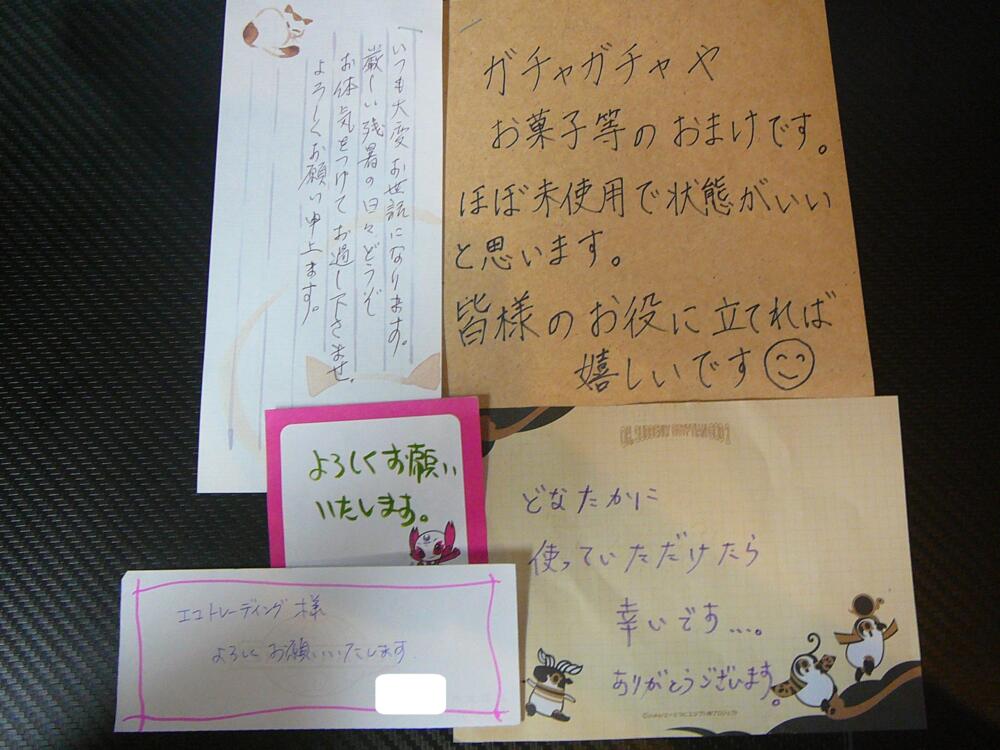 いつも大変お世話になります。
厳しい残暑の日々どうぞ
お体気をつけてお過し下さませ、
よろしくお願い申上ます。
ガチャガチャや
お菓子等のおまけです。
ほぼ未使用で状態がいい
と思います。
皆様のお役に立てれば
嬉しいです
よろしくお願い
いたします。
どなたかに
使っていただけたら
幸いです….。
ありがとうございます。
エコトレーディング様
よろしくお願いいたします